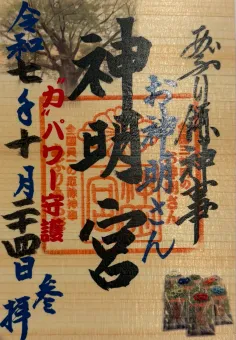 あぶり餅神事
お神明さん
神明宮
“力”パワー守護
令和七年十月二十四日
参拝